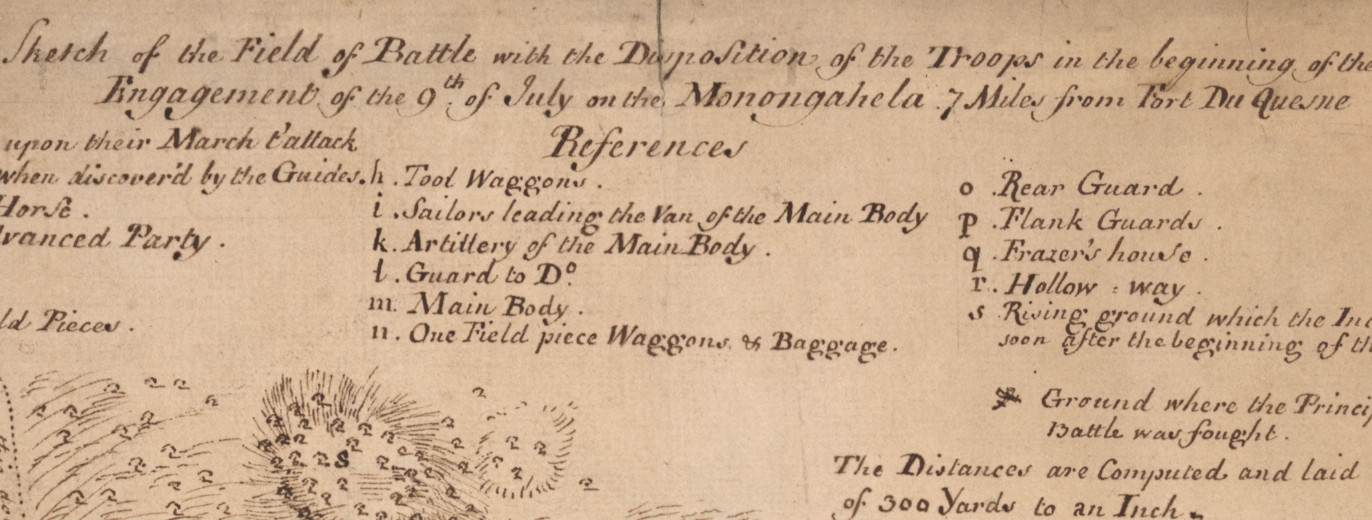 Sketch of the Field of Battle with the Disposition of the Troops in the beginning of the
Engagement of the 9th of July on the Monongahela 7 Miles from Fort Du Quesne
References
upon their March t'attack
when discover'd by the Guides.
Horse.
dvanced Party.
ld Pieces.
h. Tool Waggons.
i. Sailors leading the Van of the Main Body
k. Artillery of the Main Body.
l. Guard to Do.
m. Main Body.
n. One Field piece Waggons & Baggage.
o. Rear Guard.
p. Flank Guards.
q. Frazer's house.
r. Hollow : way.
s Rising ground which the Ind
soon after the beginning of th
Ground where the Princip
Battle was fought.
The Distances are Computed and laid
of 300 Yards to an Inch.
s